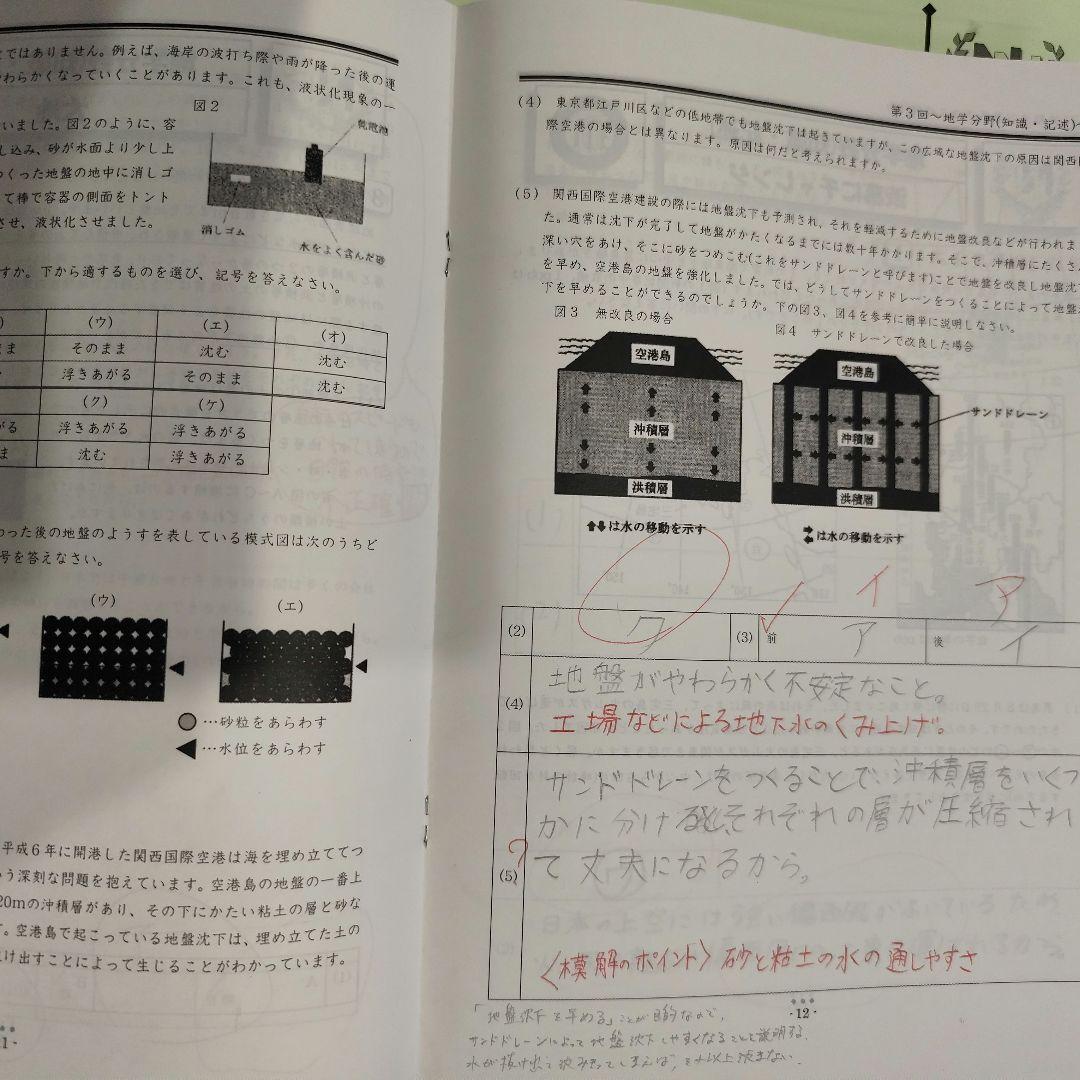 とではありません。例えば、海岸の波打ち際や雨が降った後の運
やわらかくなっていくことがあります。これも、液状化現象の一
図2
いました。図2のように、容
し込み、砂が水面より少し上
つくった地盤の地中に消しゴ
て棒で容器の側面をトント
させ、液状化させました。
乾電池
消しゴム
水をよく含んだ砂
すか。下から適するものを選び、記号を答えなさい。
(ウ) (エ) (オ)
まま そのまま 沈む 沈む
浮きあがる そのまま 沈む
(ク) (ケ)
がる 浮きあがる 浮きあがる
ま 沈む 浮きあがる
わった後の地盤のようすを表している模式図は次のうちど
号を答えなさい。
(ウ) (エ)
…砂粒をあらわす
…水位をあらわす
平成6年に開港した関西国際空港は海を埋め立ててつ
う深刻な問題を抱えています。空港島の地盤の一番上
20mの沖積層があり、その下にかたい粘土の層と砂な
す。空港島で起こっている地盤沈下は、埋め立てた土の
け出すことによって生じることがわかっています。
第3回~地学分野(知識・記述)~
(4) 東京都江戸川区などの低地帯でも地盤沈下は起きていますが、この広域な地盤沈下の原因は関西国
際空港の場合とは異なります。原因は何だと考えられますか。
(5) 関西国際空港建設の際には地盤沈下も予測され、それを軽減するために地盤改良などが行われまし
た。通常は沈下が完了して地盤がかたくなるまでには数十年かかります。そこで、沖積層にたくさん
深い穴をあけ、そこに砂をつめこむ(これをサンドドレーンと呼びます)ことで地盤を改良し地盤沈下
を早め、空港島の地盤を強化しました。では、どうしてサンドドレーンをつくることによって地盤沈
下を早めることができるのでしょうか。下の図3、図4を参考に簡単に説明しなさい。
図3 無改良の場合
空港島
沖積層
洪積層
⬆⬇は水の移動を示す
図4 サンドドレーンで改良した場合
空港島
サンドドレーン
沖積層
洪積層
は水の移動を示す
イ ア
(2) ク (3) 前 ア 後 イ
(4) 地盤がやわらかく不安定なこと。
工場などによる地下水のくみ上げ。
(5) サンドドレーンをつくることで、沖積層をいくつ
かに分け、それぞれの層が圧縮され
て丈夫になるから。
〈模解のポイント〉砂と粘土の水の通しやすさ
「地盤沈下を早める」ことが目的なので、
サンドドレーンによって地盤沈下しやすくなることを説明する。
水が抜け出て沈みきってしまえば、それ以上沈まない。
·12·